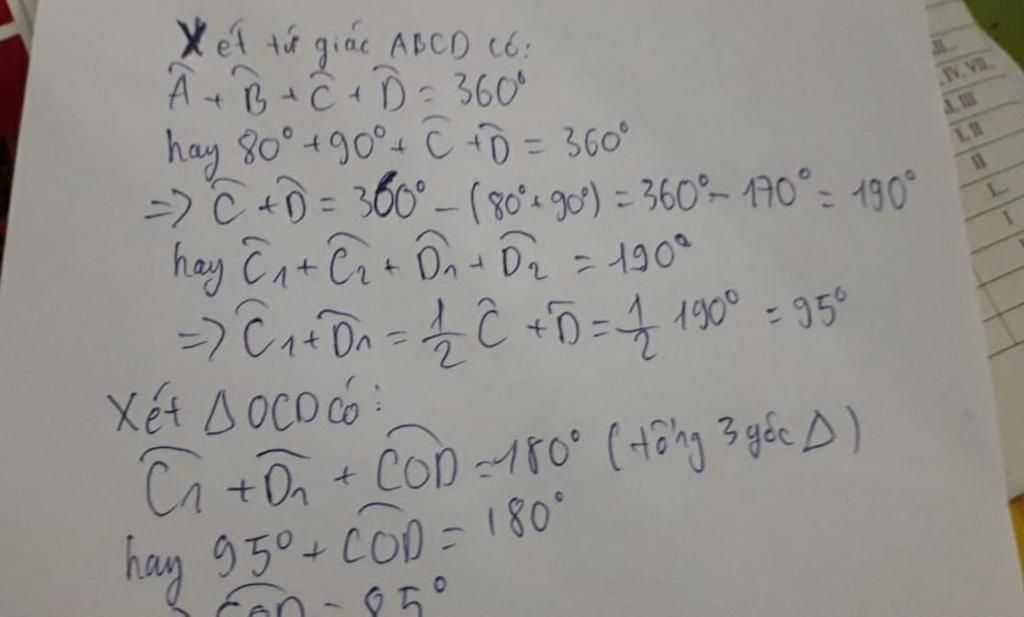 Xét tứ giác ABCD có:
Â + B̂ + Ĉ + D̂ = 360°
hay 80° + 90° + Ĉ + D̂ = 360°
=> Ĉ + D̂ = 360° - (80° + 90°) = 360° - 170° = 190°
hay Ĉ₁ + Ĉ₂ + D̂₁ + D̂₂ = 190°
=> Ĉ₁ + D̂₁ = 1/2 Ĉ + D̂ = 1/2 190° = 95°
Xét Δ OCD có:
Ĉ₁ + D̂₁ + \widehat{COD} = 180° (tổng 3 góc Δ)
hay 95° + \widehat{COD} = 180°
\widehat{COD} = 85°
IV, VII
I, II
II
I